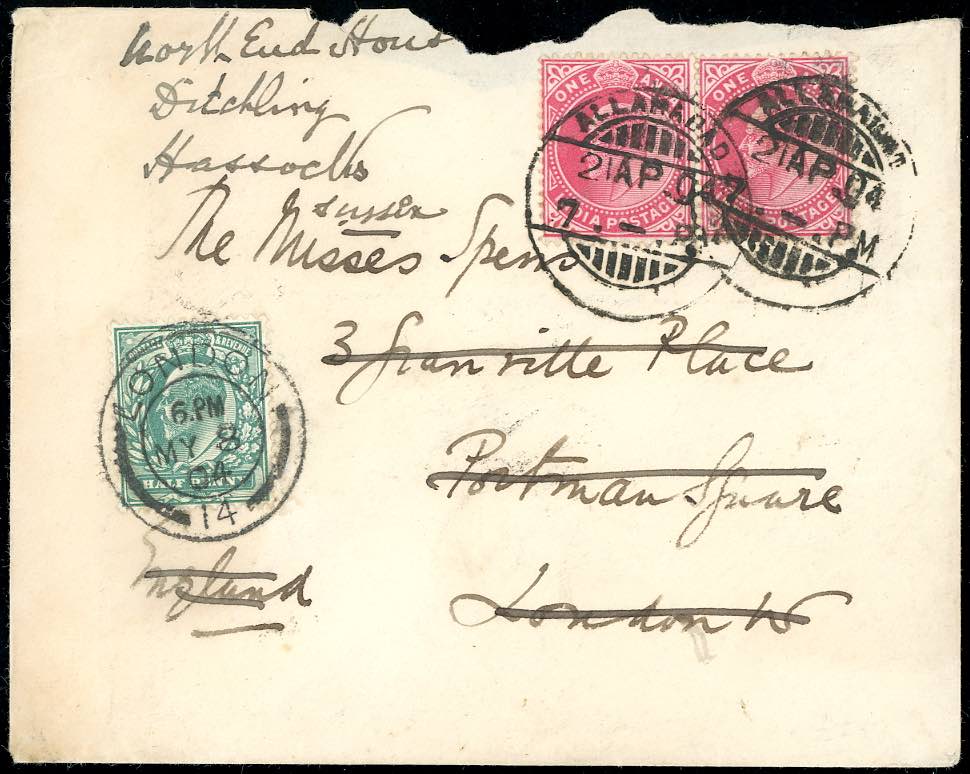 North End Hous
Ditchling
Hassocks
Sussex
The Misses Spens
3 Granville Place
Portman Square
London W
England
ONE AN
INDIA POSTAGE
ALLAHABAD
21 AP. 04
7. - . PM
ONE
INDIA POSTAGE
ALLAHABAD
21 AP. 04
7. - . PM
POSTAGE & REVENUE
HALF PENNY
LONDON
6. PM
MY 8
04
14